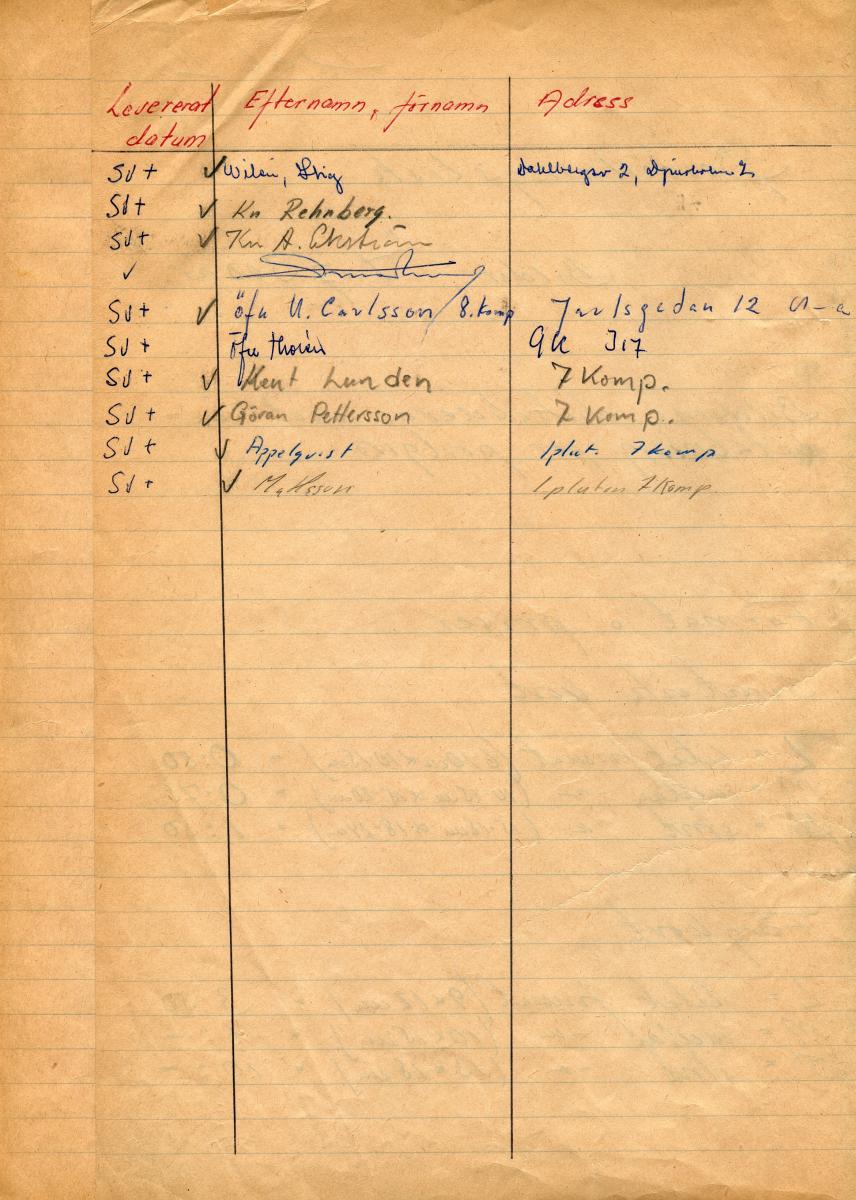 Levererat Efternamn, förnamn Adress
datum
SV + ✓ Wilén, Stig Dahlbergsv 2, Djursholm 2
SV + ✓ Kn Rehnberg.
SV + ✓ Kn A. Ekström
✓
SV + ✓ Öfu U. Carlsson / 8. Komp Jarlsgadan 12 U-a
SV + Öfu Thorén GK I17
SV + ✓ Kent Lunden 7 Komp.
SV + ✓ Göran Pettersson 7 Komp.
SV + ✓ Appelqvist 1plut. 7 komp
SV + ✓ Mattsson 1 pluton 7 Komp.